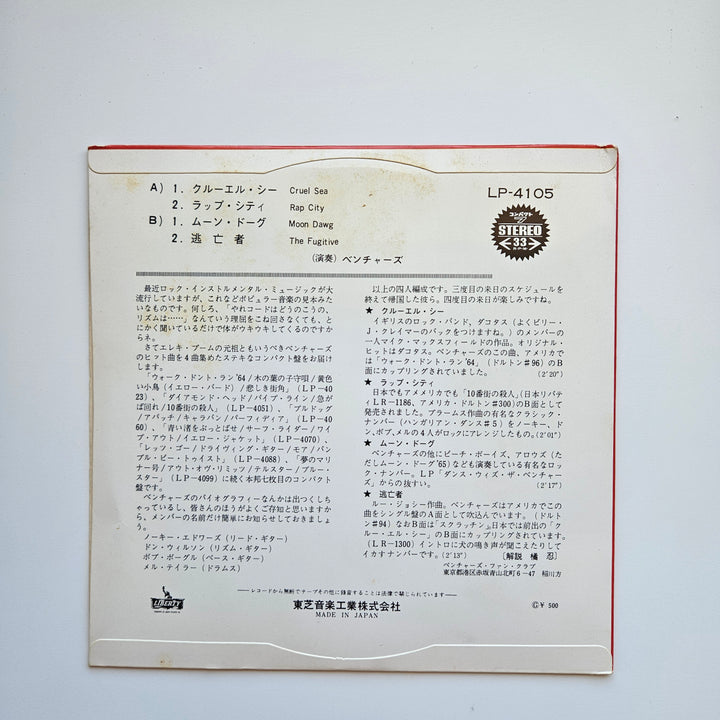 A) 1. クルーエル・シー Cruel Sea
2. ラップ・シティ Rap City
B) 1. ムーン・ドーグ Moon Dawg
2. 逃亡者 The Fugitive
(演奏) ベンチャーズ
LP-4105
コンパクト
STEREO
33
最近ロック・インストルメンタル・ミュージックが大
流行していますが、これなどポピュラー音楽の見本みた
いなものです。何しろ、「やれコードはどうのこうの、
リズムは……」なんていう理屈をこね回さなくても、と
にかく聞いているだけで体がウキウキしてくるのですか
らネ。
さてエレキ・ブームの元祖ともいうべきベンチャーズ
のヒット曲を4曲集めたステキなコンパクト盤をお届け
します。
「ウォーク・ドント・ラン'64/木の葉の子守唄/黄色
い小鳥(イエロー・バード)/悲しき街角」(LP-40
23)、「ダイアモンド・ヘッド/パイプ・ライン/急が
ば回れ/10番街の殺人」(LP-4051)、「ブルドッグ
/アパッチ/キャラバン/パーフィディア」(LP-40
60)、「青い渚をぶっとばせ/サーフ・ライダー/ワイ
プ・アウト/イエロー・ジャケット」(LP-4070)、
「レッツ・ゴー/ドライヴィング・ギター/モア/バン
ブル・ビー・トゥイスト」(LP-4088)、「夢のマリ
ナー号/アウト・オヴ・リミッツ/テルスター/ブルー・
スター」(LP-4099)に続く本邦七枚目のコンパクト
盤です。
ベンチャーズのバイオグラフィーなんかは出つくしち
ゃっているし、皆さんのほうがよくご存知と思いますか
ら、メンバーの名前だけ簡単にお知らせしておきましょ
う。
ノーキー・エドワーズ(リード・ギター)
ドン・ウィルソン(リズム・ギター)
ボブ・ボーグル(ベース・ギター)
メル・テイラー(ドラムス)
以上の四人編成です。三度目の来日のスケジュールを
終えて帰国した彼ら。四度目の来日が楽しみですね。
★ クルーエル・シー
イギリスのロック・バンド、ダコタス(よくビリー・
J・クレイマーのバックをつけますね。)のメンバーの
一人マイク・マックスフィールドの作品。オリジナル・
ヒットはダコタス。ベンチャーズのこの曲、アメリカで
は「ウォーク・ドント・ラン'64」(ドルトン#96)のB
面にカップリングされていました。(2'20")
★ ラップ・シティ
日本でもアメリカでも「10番街の殺人」(日本リバテ
ィLR-1186、アメリカ・ドルトン#300)のB面として
発売されました。ブラームス作曲の有名なクラシック・
ナンバー(ハンガリアン・ダンス#5)をノーキー、ド
ン、ボブ、メルの4人がロックにアレンジしたもの。(2'01")
★ ムーン・ドーグ
ベンチャーズの他にビーチ・ボーイズ、アロウズ(た
だしムーン・ドーグ'65)なども演奏している有名なロ
ック・ナンバー。LP「ダンス・ウィズ・ザ・ベンチャー
ズ」からの抜すい。(2'17")
★ 逃亡者
ルー・ジョシー作曲。ベンチャーズはアメリカでこの
曲をシングル盤のA面として吹込んでいます。(ドルト
ン#94) なおB面は「スクラッチン」。日本では前出の「ク
ルー・エル・シー」のB面にカップリングされています。
(LR-1300) イントロに犬の鳴き声が聞こえたりして
イカすナンバーです。(2'13") 〔解説 橘 忍〕
ベンチャーズ・ファン・クラブ
東京都港区赤坂青山北町6-47 稲川方
レコードから無断でテープその他に録音することは法律で禁じられています
LIBERTY
東芝音楽工業株式会社
MADE IN JAPAN
Ⓒ¥ 500